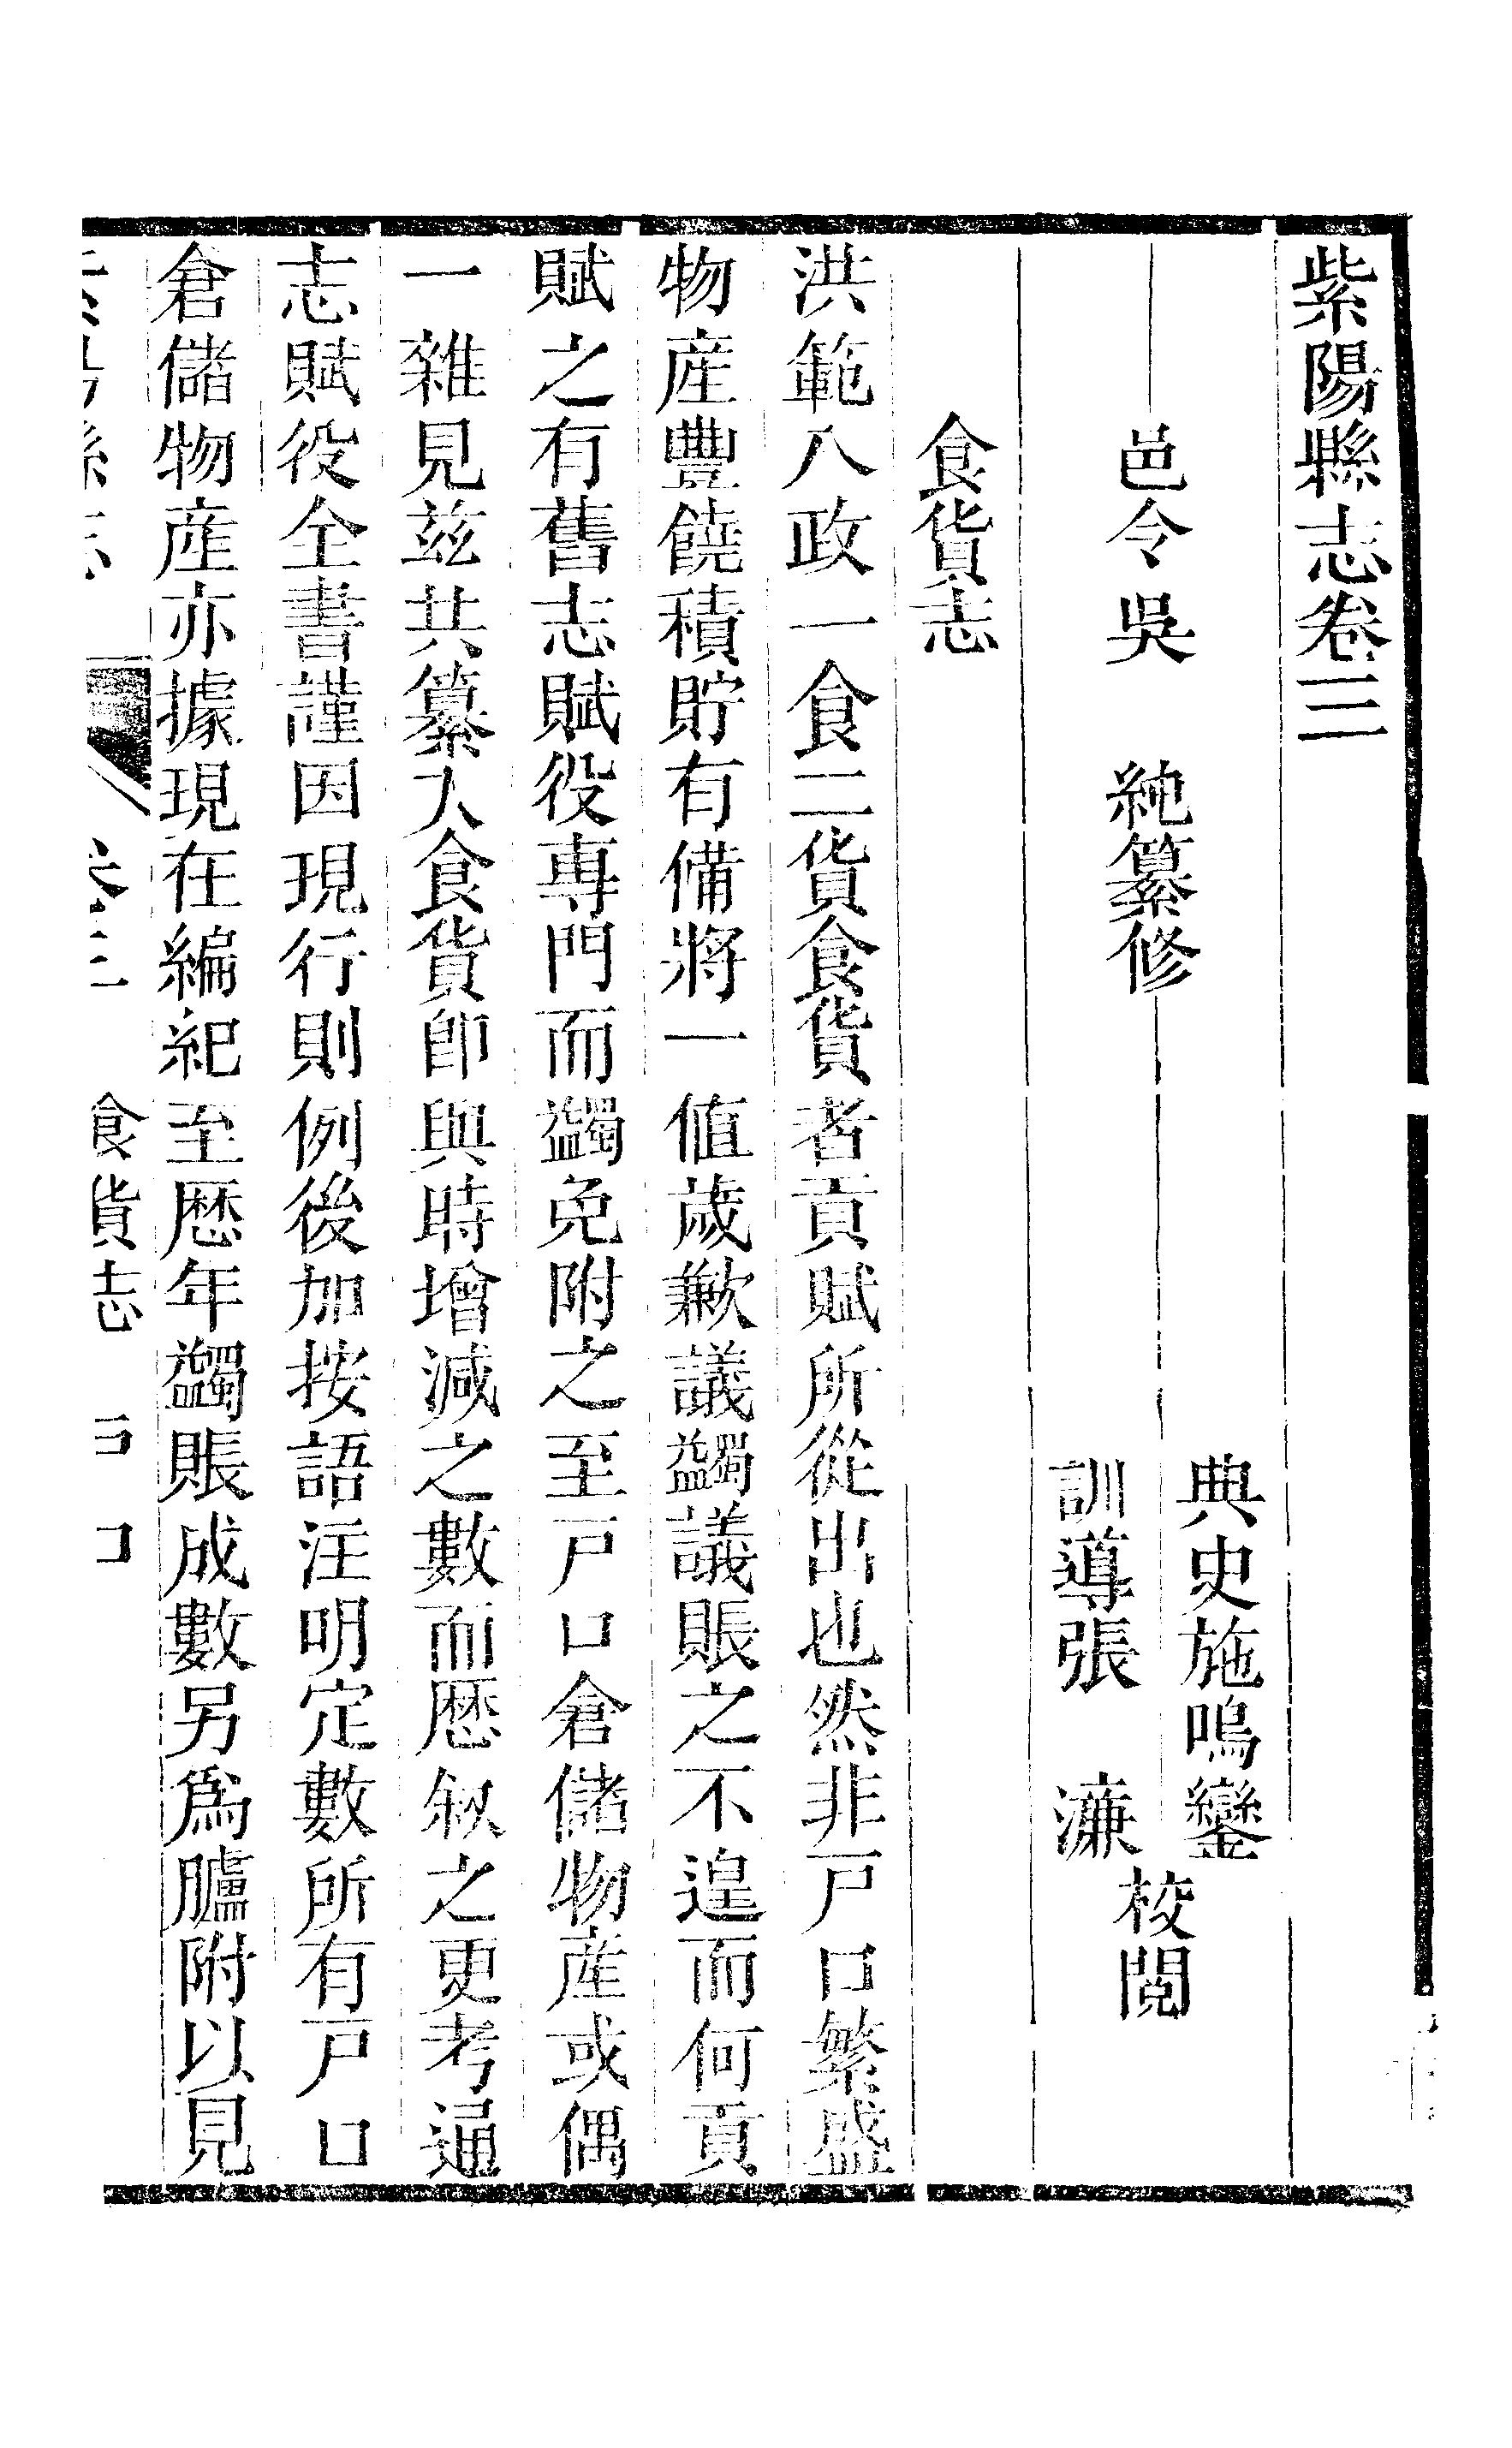 紫陽縣志卷三
邑令吳　純纂修
典史施鳴鑾
訓導張　濂
校閱
食貨志
洪範八政一食二貨食貨者貢賦所從出也然非戸口繁盛
物産豐饒積貯有備將一值歲歉議蠲議賑之不遑而何貢
賦之有舊志賦役專門而蠲免附之至戸口倉儲物産或偶
一雜見兹共纂入食貨卽與時增減之數而歷叙之更考通
志賦役全書謹因現行則例後加按語注明定數所有戸口
倉儲物産亦據現在編紀至歷年蠲賑成數另爲臚附以見
卷三　食貨志　戸口